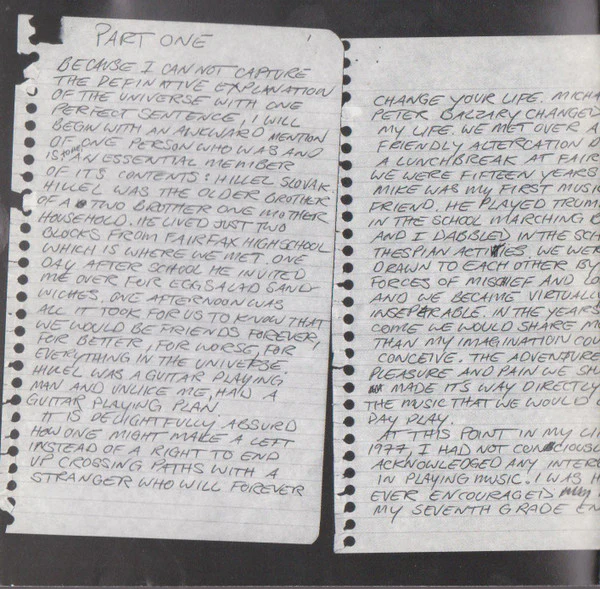 PART ONE
1
BECAUSE I CAN NOT CAPTURE
THE DEFINATIVE EXPLANATION
OF THE UNIVERSE WITH ONE
PERFECT SENTENCE, I WILL
BEGIN WITH AN AWKWARD MENTION
OF ONE PERSON WHO WAS AND
IS AN ESSENTIAL MEMBER
OF ITS CONTENTS: HILLEL SLOVAK.
HILLEL WAS THE OLDER BROTHER
OF A TWO BROTHER ONE MOTHER
HOUSEHOLD. HE LIVED JUST TWO
BLOCKS FROM FAIRFAX HIGH SCHOOL
WHICH IS WHERE WE MET. ONE
DAY AFTER SCHOOL HE INVITED
ME OVER FUR EGG SALAD SAND-
WICHES. ONE AFTERNOON WAS
ALL IT TOOK FOR US TO KNOW THAT
WE WOULD BE FRIENDS FOREVER,
FOR BETTER, FOR WORSE, FOR
EVERYTHING IN THE UNIVERSE.
HILLEL WAS A GUITAR PLAYING
MAN AND UNLIKE ME, HAD A
GUITAR PLAYING PLAN
IT IS DELIGHTFULLY ABSURD
HOW ONE MIGHT MAKE A LEFT
INSTEAD OF A RIGHT TO END
UP CROSSING PATHS WITH A
STRANGER WHO WILL FOREVER
CHANGE YOUR LIFE. MICHA
PETER BALZARY CHANGED
MY LIFE. WE MET OVER A
FRIENDLY ALTERCATION D
A LUNCHBREAK AT FAIR
WE WERE FIFTEEN YEARS
MIKE WAS MY FIRST MUSIC
FRIEND. HE PLAYED TRUM
IN THE SCHOOL MARCHING B
AND I DABBLED IN THE SCH
THESPIAN ACTIVITIES. WE WER
DRAWN TO EACH OTHER BY
FORCES OF MISCHIEF AND LO
AND WE BECAME VIRTUALLY
INSEPERABLE. IN THE YEARS
COME WE WOULD SHARE MO
THAN MY IMAGINATION COU
CONCEIVE. THE ADVENTURE
PLEASURE AND PAIN WE SH
MADE ITS WAY DIRECTLY
THE MUSIC THAT WE WOULD
DAY PLAY.
AT THIS POINT IN MY LIF
1977, I HAD NOT CONSCIOUSL
ACKNOWLEDGED ANY INTER
IN PLAYING MUSIC. I WAS H
EVER ENCOURAGED
MY SEVENTH GRADE EN